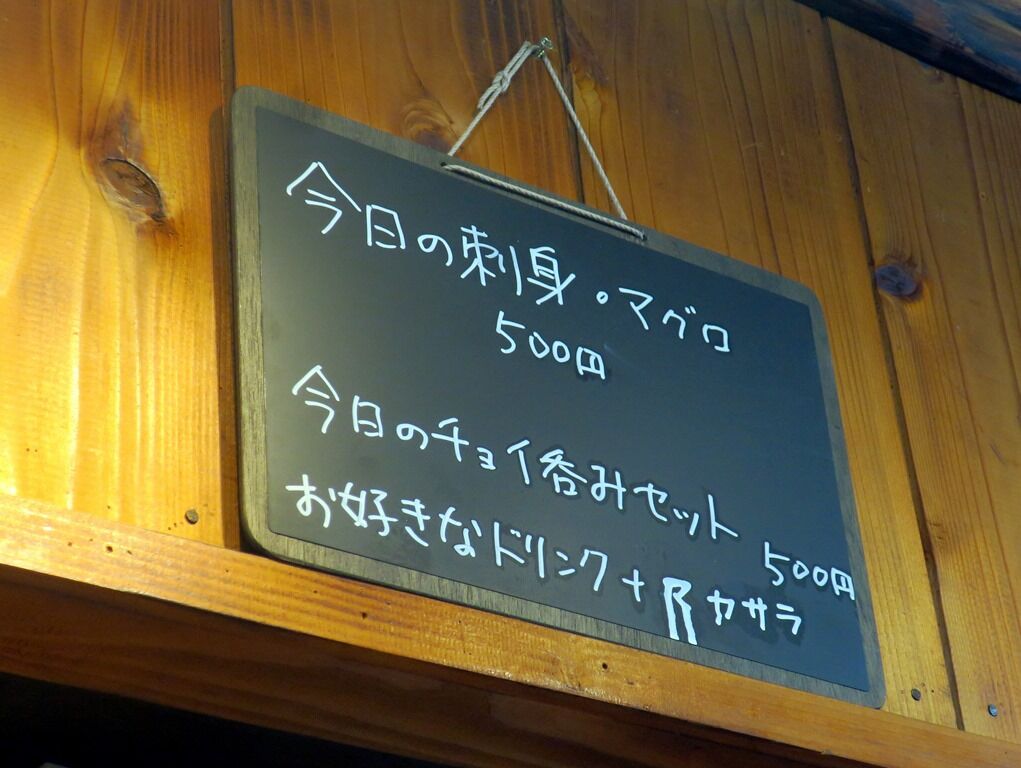 今日の刺身・マグロ
500円
今日のチョイ呑みセット
500円
お好きなドリンク+ カサラ